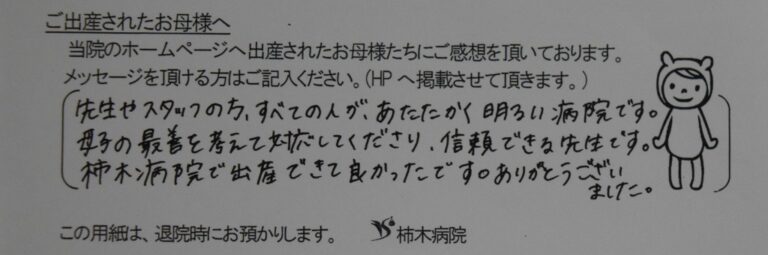 ご出産されたお母様へ
当院のホームページへ出産されたお母様たちにご感想を頂いております。
メッセージを頂ける方はご記入ください。(HPへ掲載させて頂きます。)
先生やスタッフの方、すべての人が、あたたかく明るい病院です。
母子の最善を考えて対応してくださり、信頼できる先生です。
柿木病院で出産できて良かったです。ありがとうござい
ました。
この用紙は、退院時にお預かりします。 柿木病院